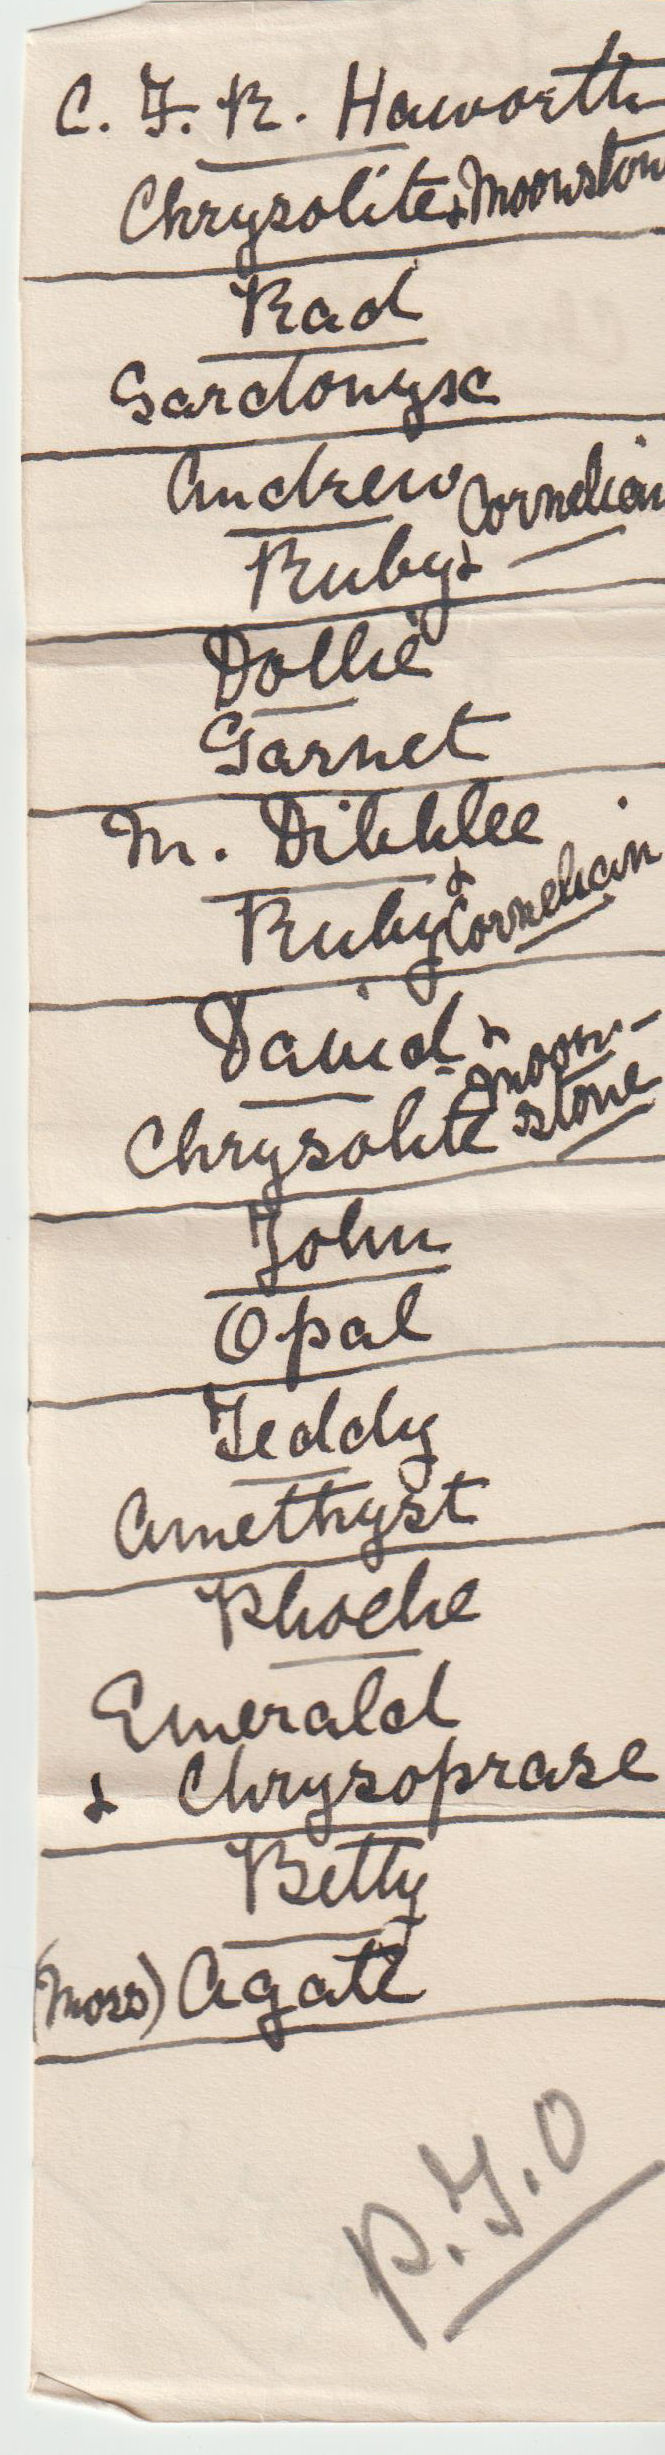 C. F. R. Haworth
Chrysolite & Moonston
Rad
Sardonyx
Andrew
Ruby & Cornelian
Dollie
Garnet
M. Dibblee
Ruby & Cornelian
David
Chrysolite & Moon-
stone
John
Opal
Teddy
Amethyst
Phoebe
Emerald
& Chrysoprase
Betty
(Moss) Agate
P.T.O